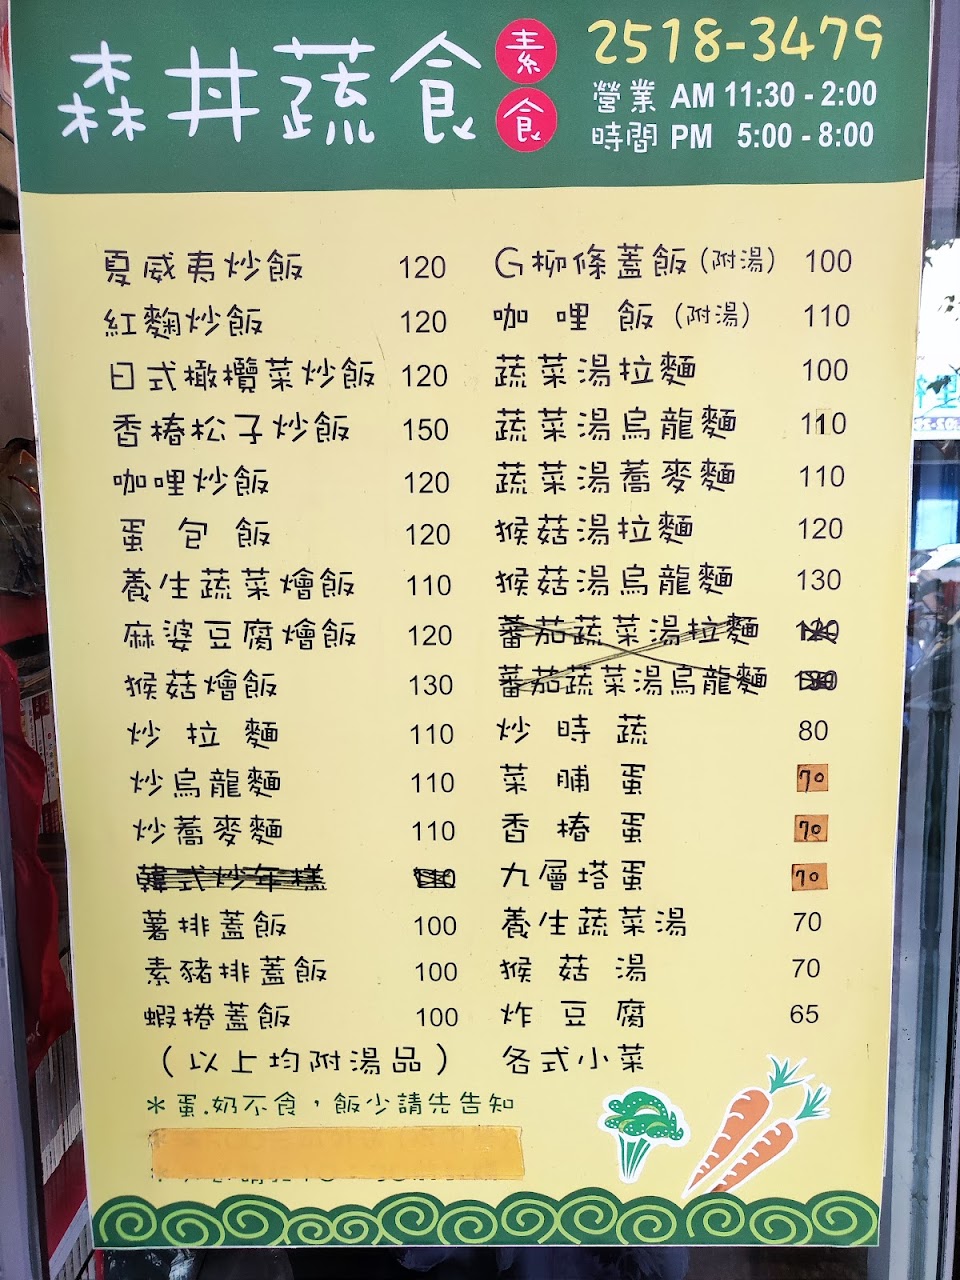 森丼蔬食 素食
2518-3479
營業時間 AM 11:30 - 2:00
PM 5:00 - 8:00
夏威夷炒飯 120
紅麴炒飯 120
日式橄欖菜炒飯 120
香椿松子炒飯 150
咖哩炒飯 120
蛋包飯 120
養生蔬菜燴飯 110
麻婆豆腐燴飯 120
猴菇燴飯 130
炒拉麵 110
炒烏龍麵 110
炒蕎麥麵 110
韓式炒年糕
薯排蓋飯 100
素豬排蓋飯 100
蝦捲蓋飯 100
(以上均附湯品)
G柳條蓋飯(附湯) 100
咖哩飯(附湯) 110
蔬菜湯拉麵 100
蔬菜湯烏龍麵 110
蔬菜湯蕎麥麵 110
猴菇湯拉麵 120
猴菇湯烏龍麵 130
蕃茄蔬菜湯拉麵 120
蕃茄蔬菜湯烏龍麵 130
炒時蔬 80
菜脯蛋 70
香椿蛋 70
九層塔蛋 70
養生蔬菜湯 70
猴菇湯 70
炸豆腐 65
各式小菜
＊蛋.奶不食，飯少請先告知